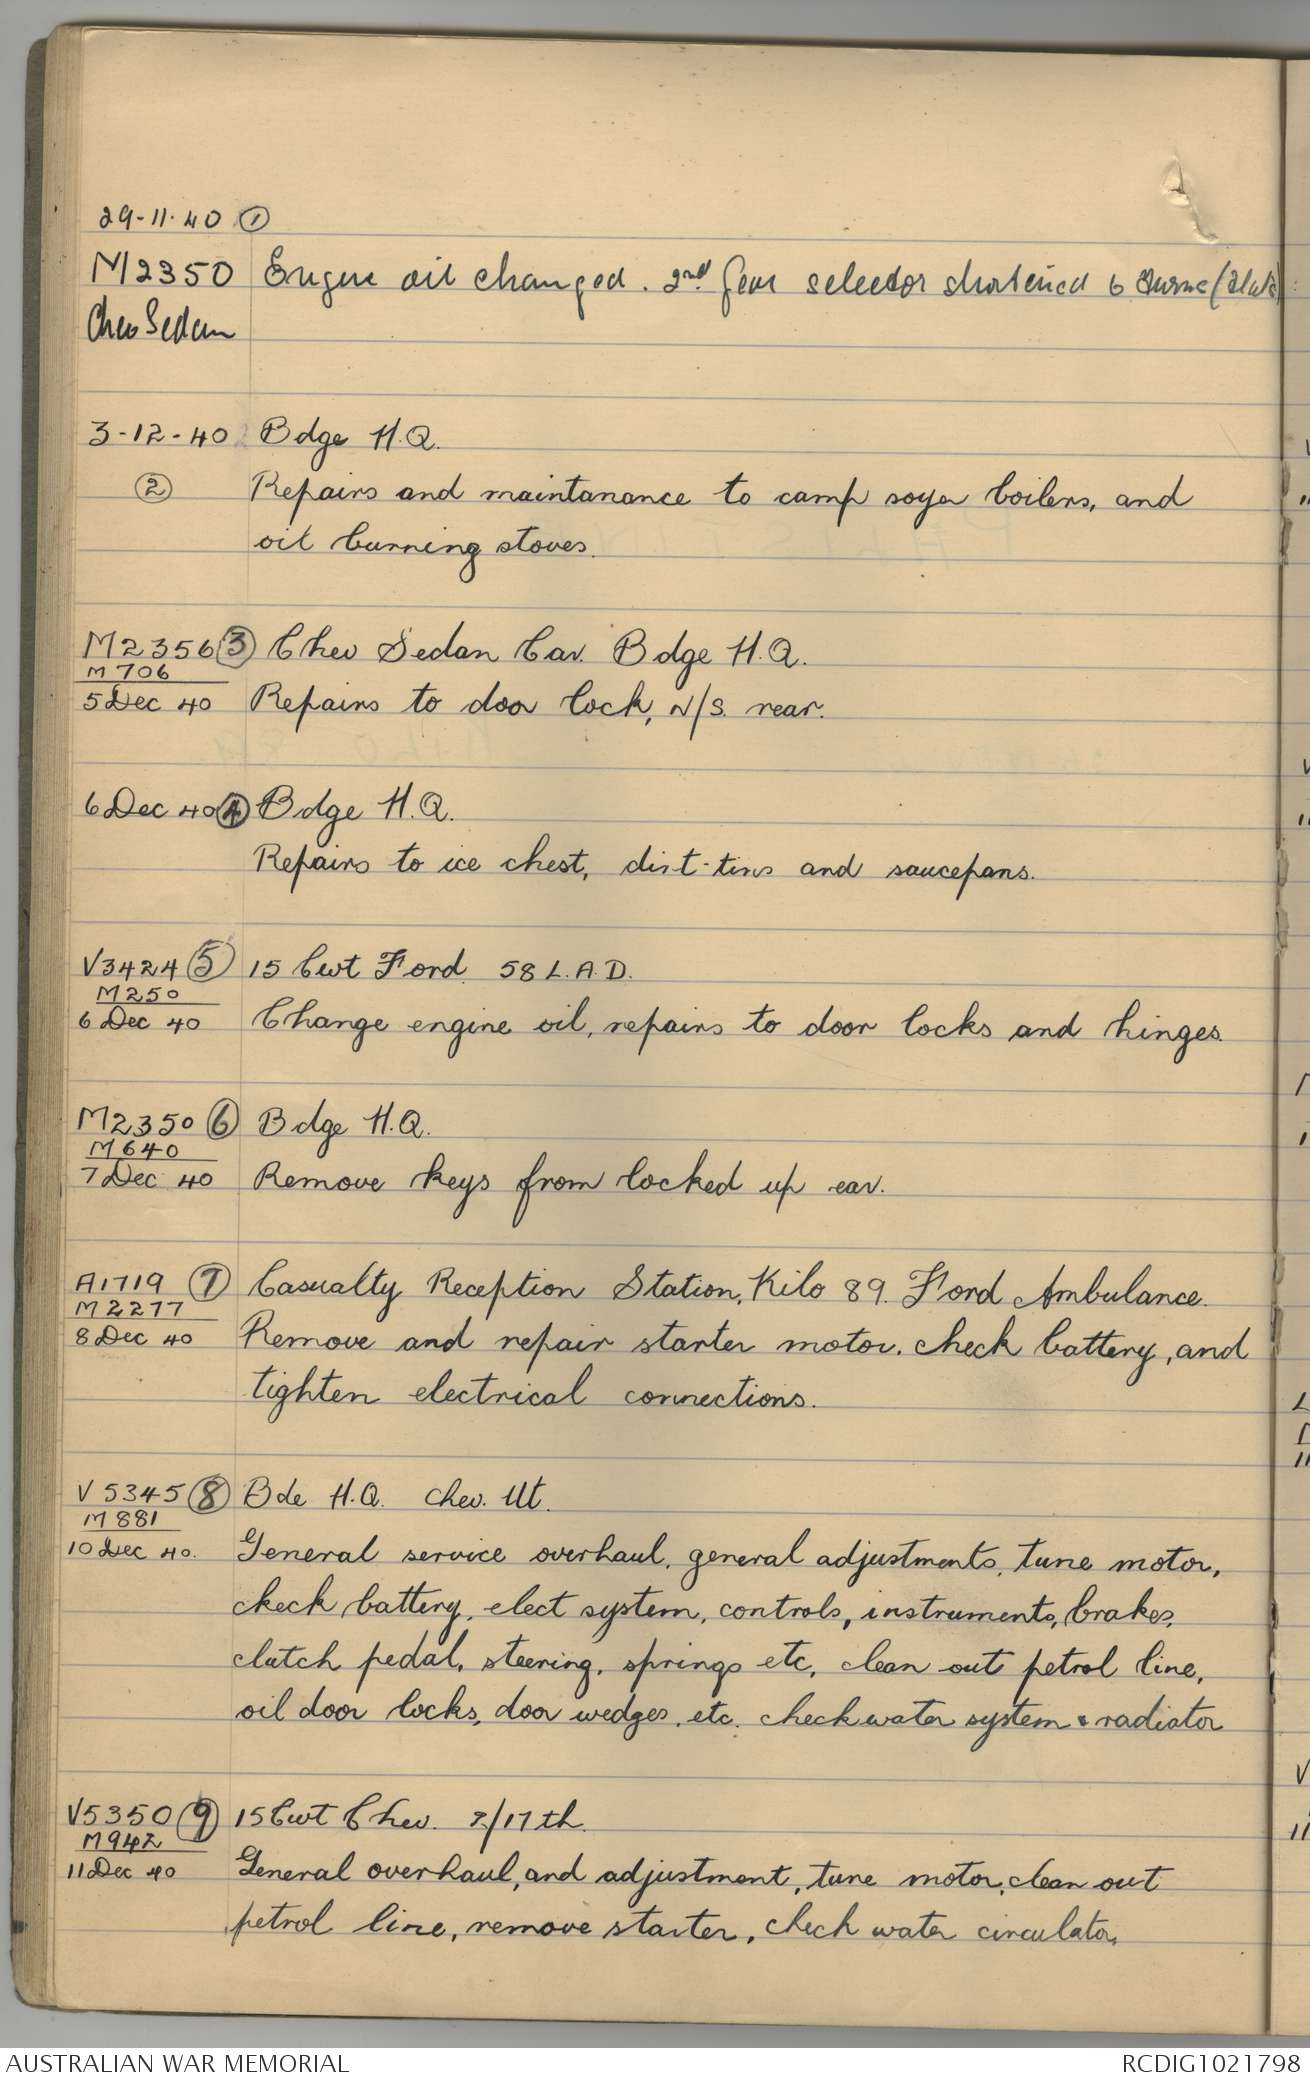 29-11-40 ①
M2350 Engine oil changed. 2nd gear selector shortened 6
Chev Sedan
3-12-40 Bdge H.Q.
② Repairs and maintanance to camp soyer boilers, and
oil burning stoves.
M2356 ③ Chev Sedan Car. Bdge H.Q.
M706
5 Dec 40 Repairs to door lock, N/S. rear.
6 Dec 40 ④ Bdge H.Q.
Repairs to ice chest, dirt-tins and saucepans.
V3424 ⑤ 15 Cwt Ford. 58 L.A.D.
M250
6 Dec 40 Change engine oil, repairs to door locks and hinges.
M2350 ⑥ Bdge H.Q.
M640
7 Dec 40 Remove keys from locked up car.
A1719 ⑦ Casualty Reception Station, Kilo 89. Ford Ambulance.
M2277
8 Dec 40 Remove and repair starter motor. check battery, and
tighten electrical connections.
V5345 ⑧ Bde H.Q. Chev. Ut.
M881
10 Dec 40. General service overhaul, general adjustments, tune motor,
check battery, elect system, controls, instruments, brakes,
clutch pedal, steering, springs etc, clean out petrol line,
oil door locks, door wedges, etc. check water system & radiator
V5350 ⑨ 15 Cwt Chev. 2/17th.
M942
11 Dec 40 General overhaul, and adjustment, tune motor, clean out
petrol line, remove starter, check water circulator,
AUSTRALIAN WAR MEMORIAL
RCDIG1021798